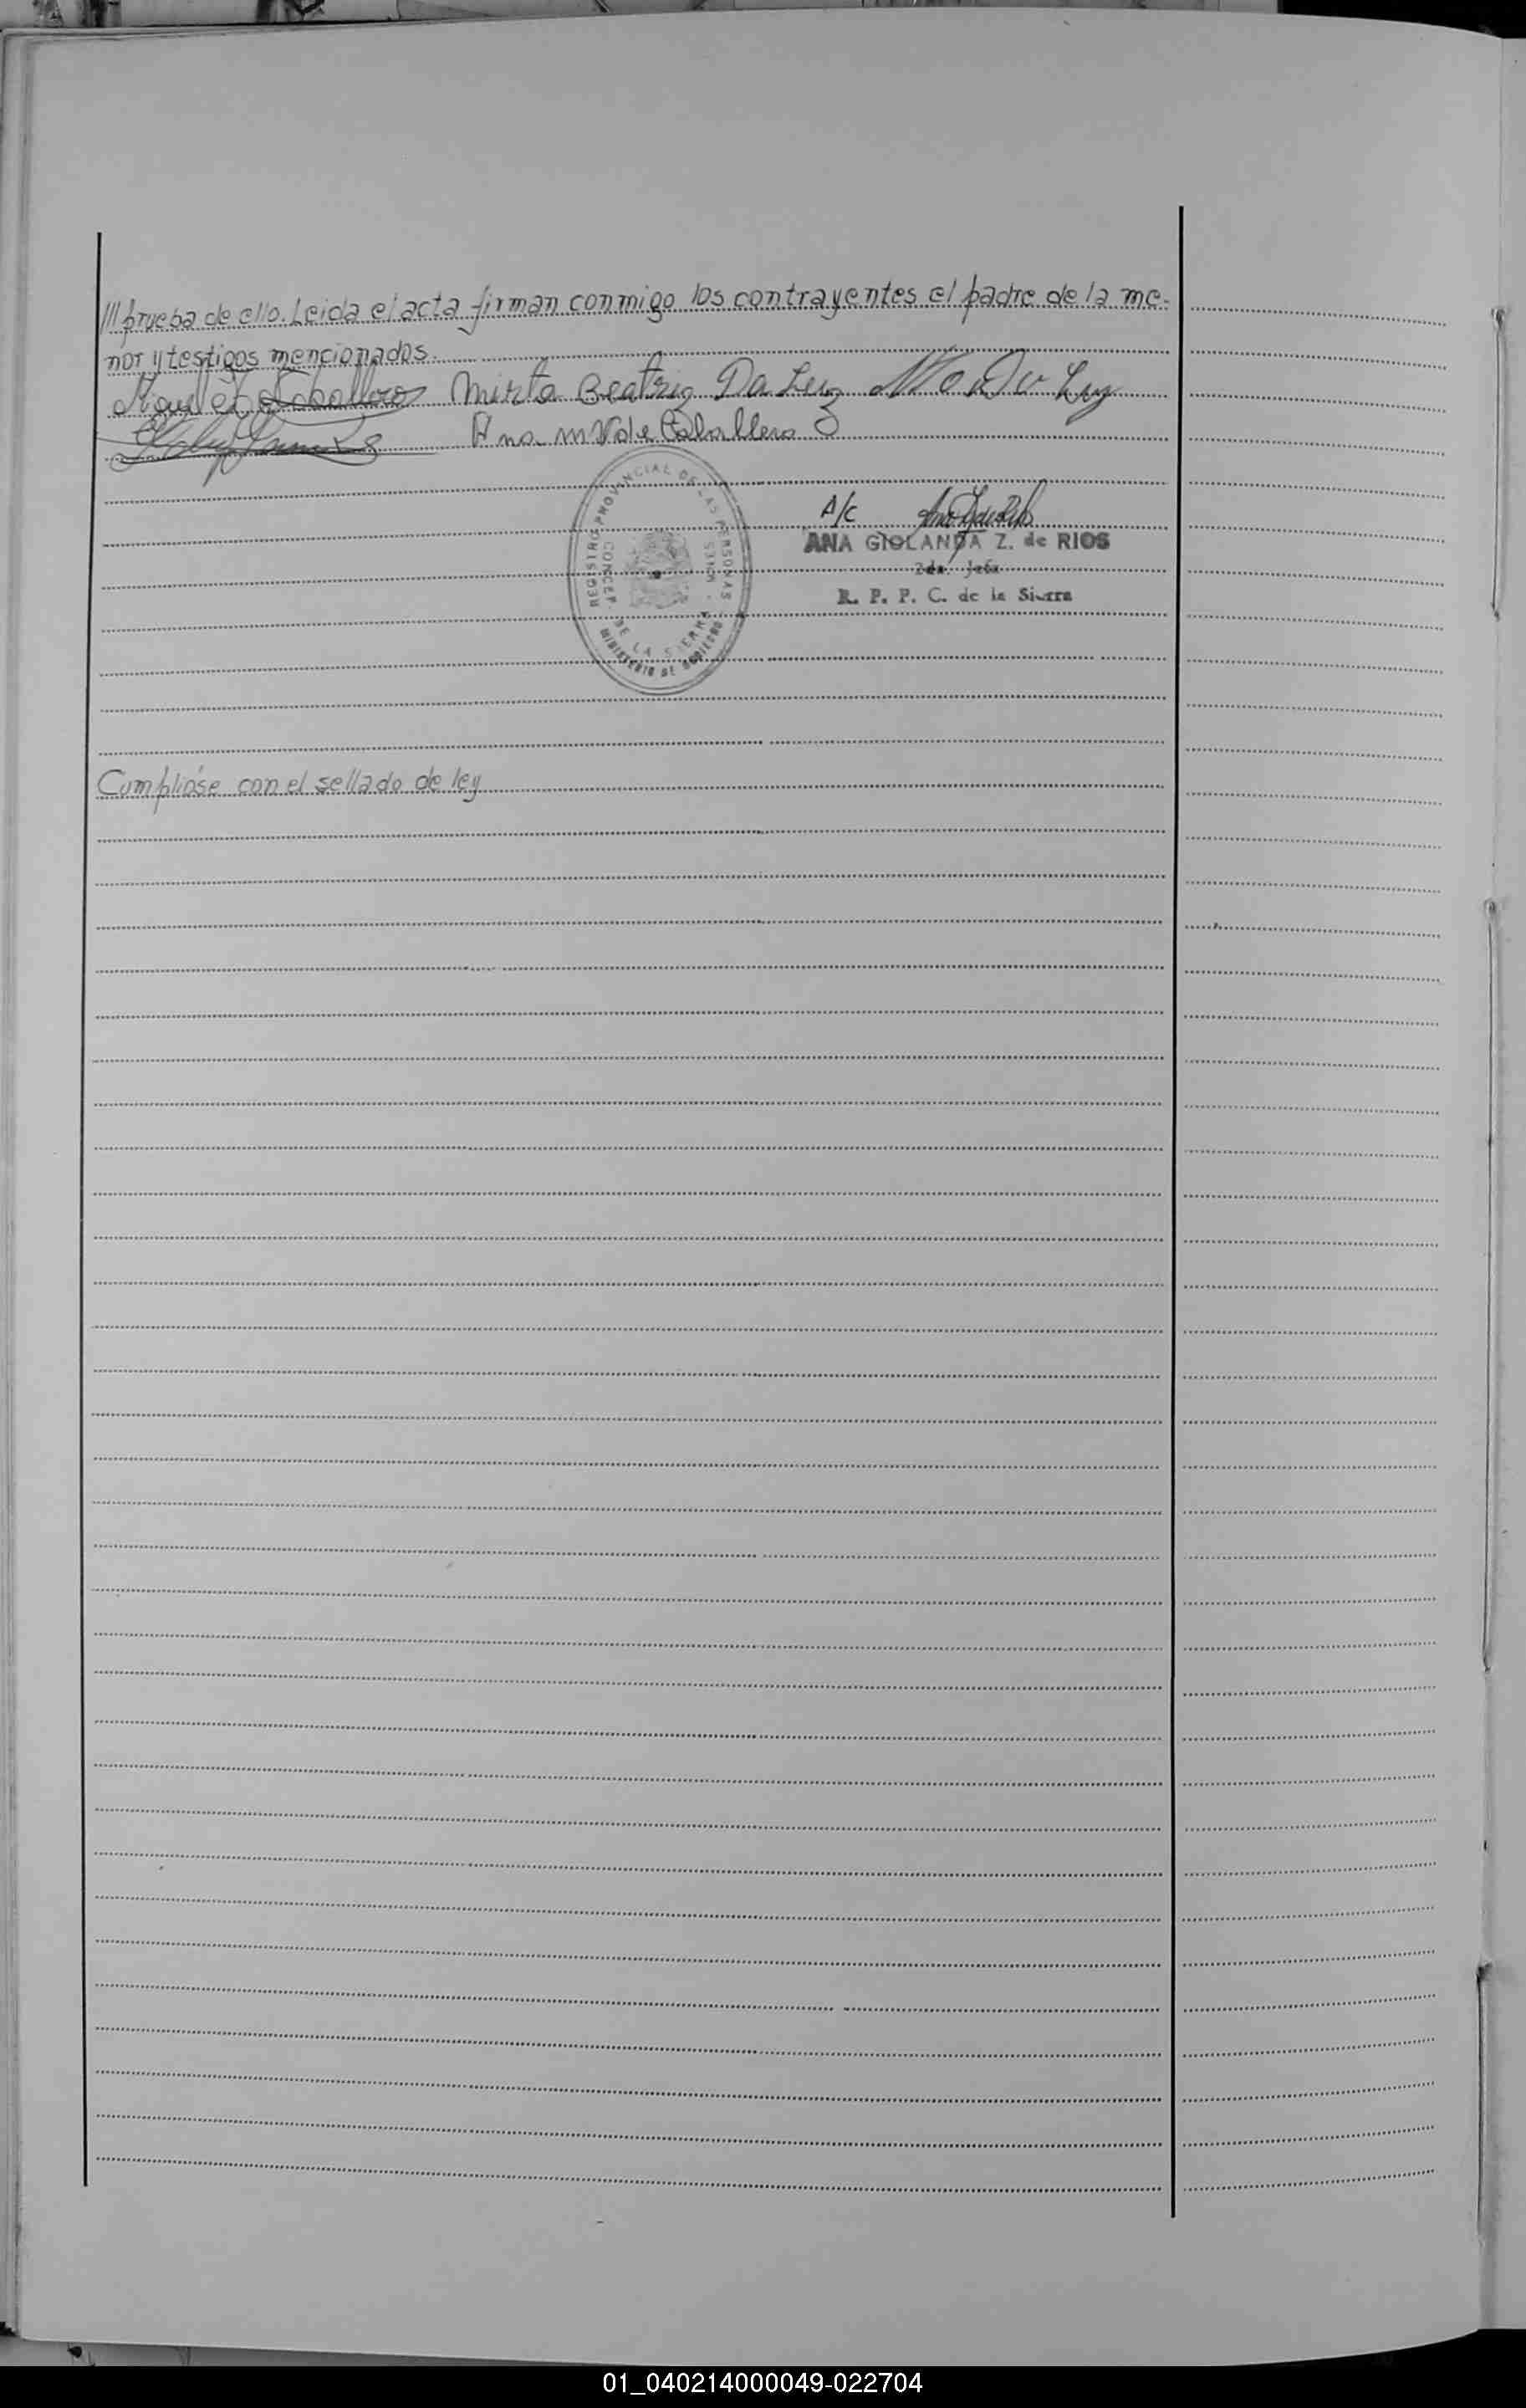 /// prueba de ello. Leida el acta firman conmigo los contrayentes el padre de la me-
nor y testigos mencionados.
Miguel Caballero Mirta Beatriz Da Luz Da Luz
Ana M V de Caballero
REGISTRO PROVINCIAL DE LAS PERSONAS
CONCEP. DE LA SIERRA
MINISTERIO DE GOBIERNO
A/C
ANA GIOLANDA Z. de RIOS
2da. Jefa
R. P. P. C. de la Sierra
Cumplióse con el sellado de ley
01_040214000049-022704